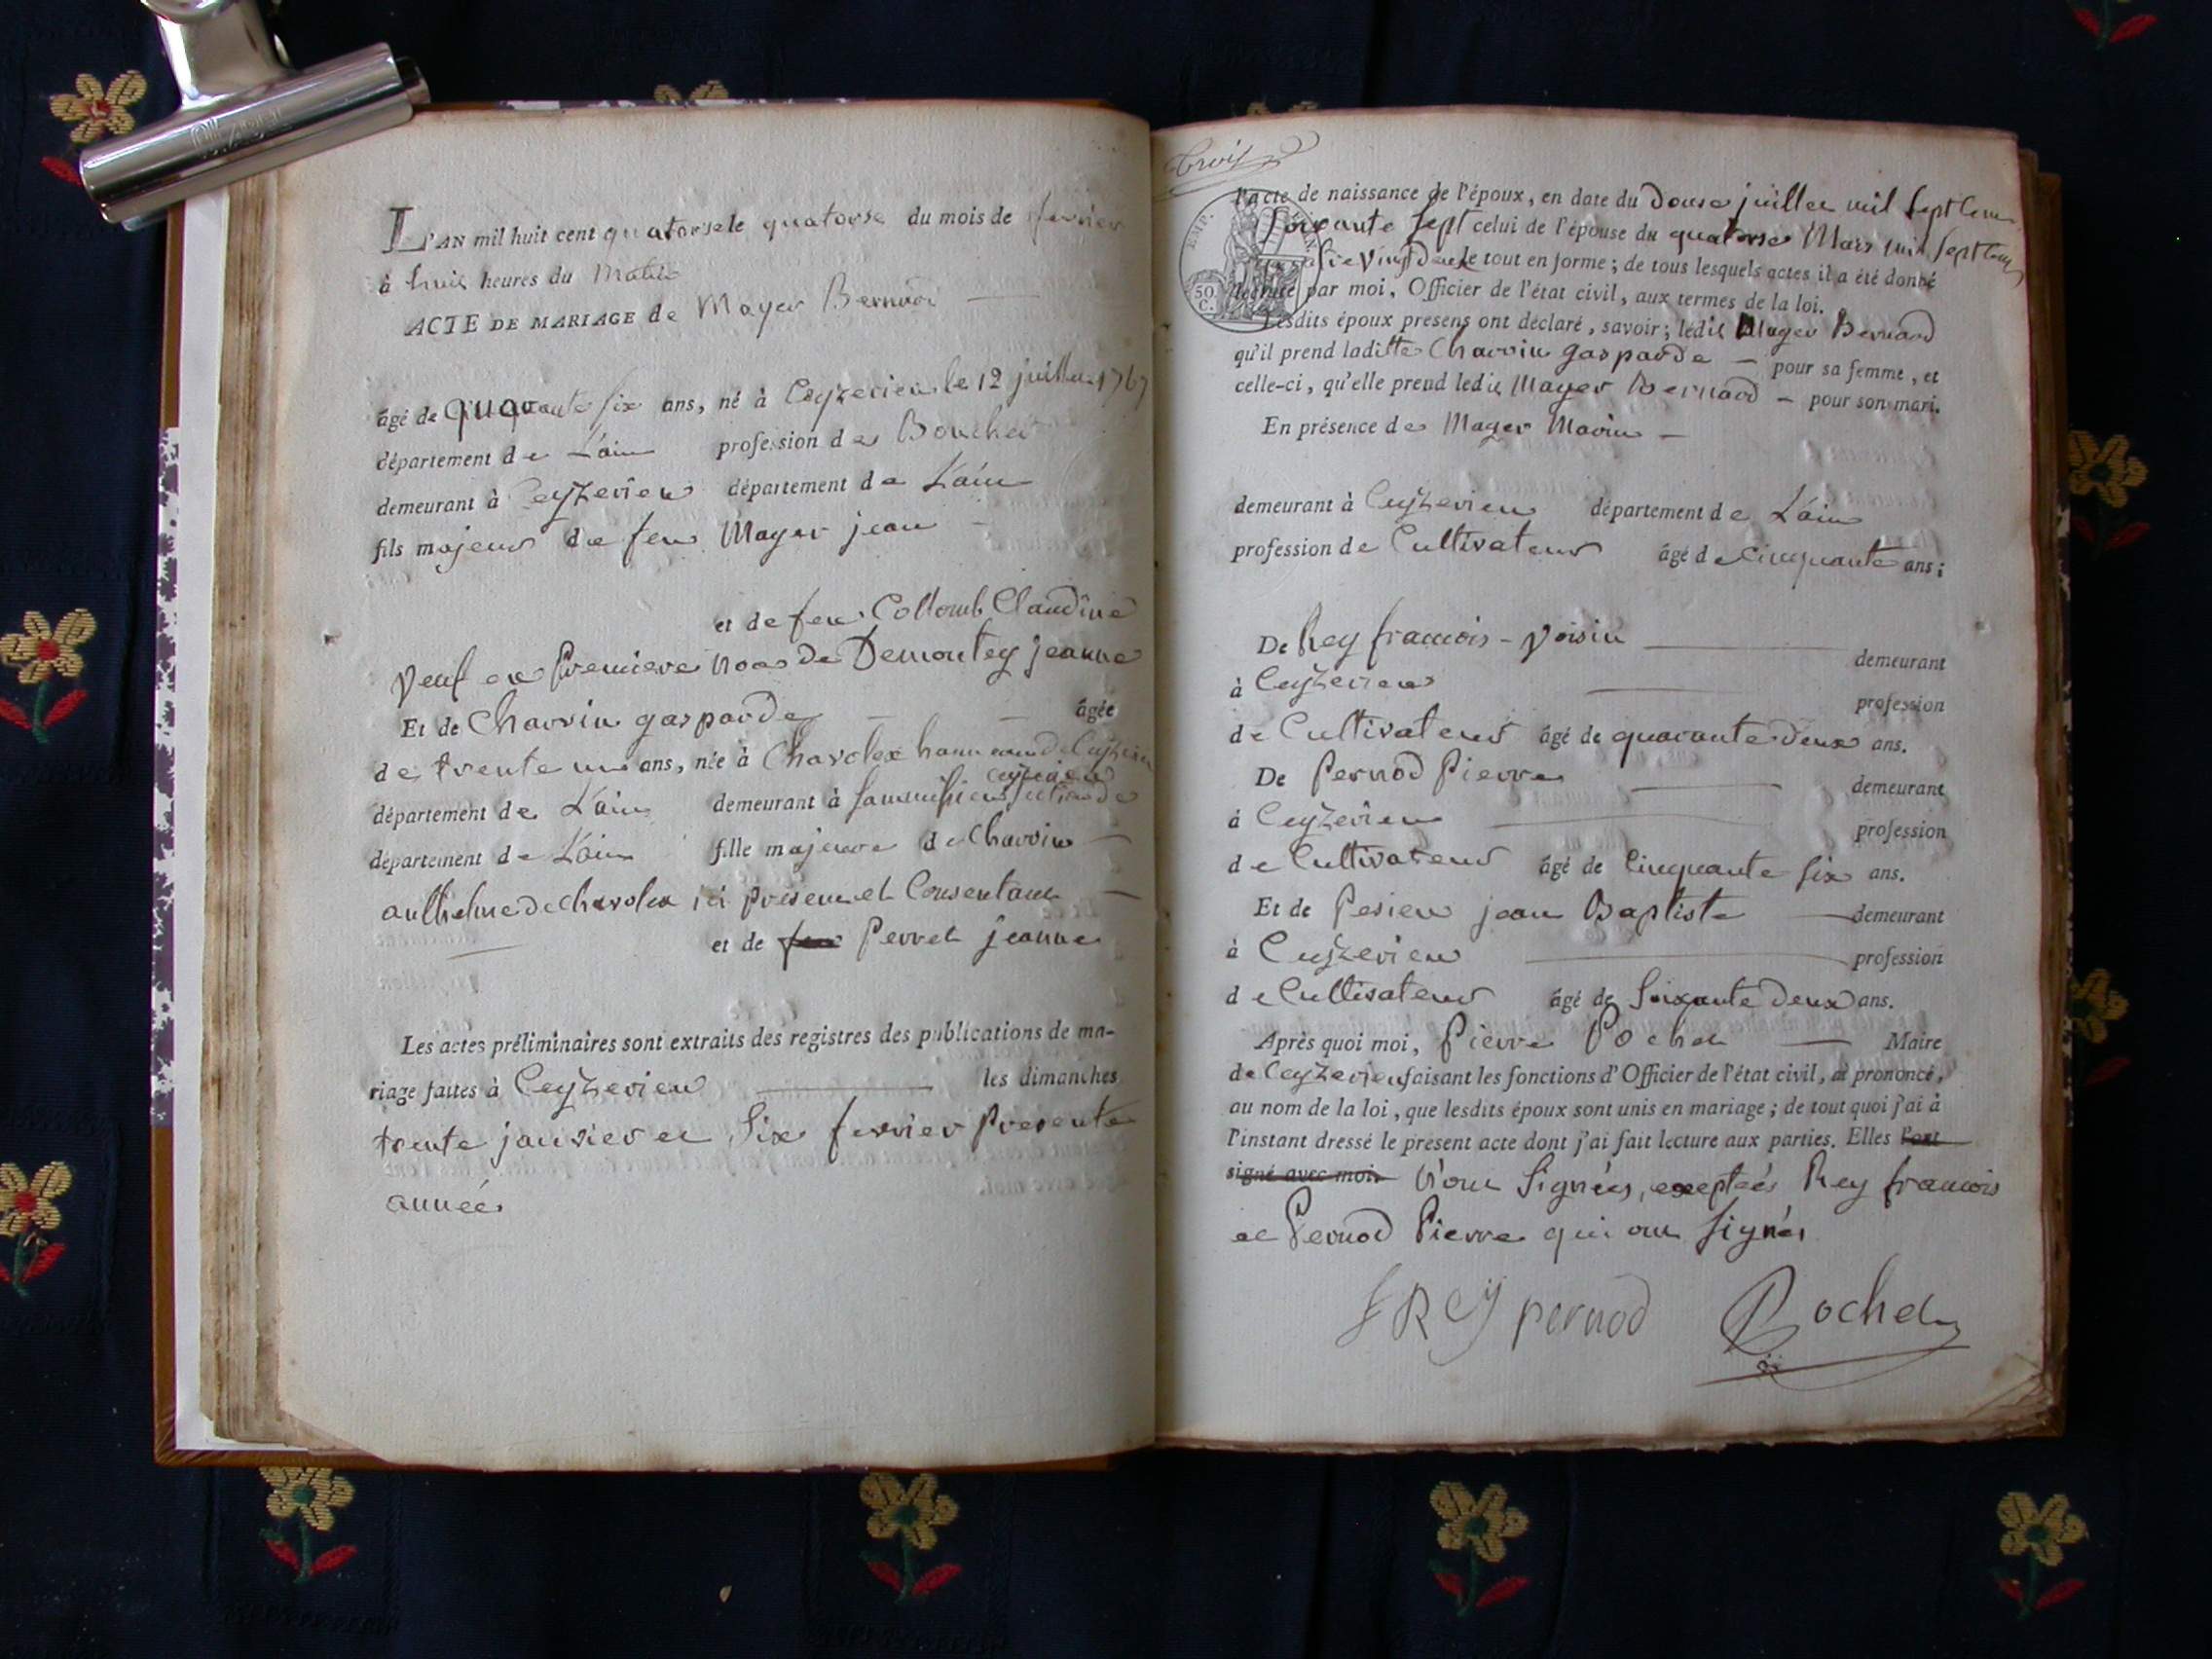 L'AN mil huit cent quatorse le quatorse du mois de fevrier
à huit heures du Matin
ACTE DE MARIAGE de Mayer Bernard
âgé de quarante six ans, né à Ceyzerieu le 12 juillet 1767
département de L'ain profession de Boucher
demeurant à Ceyzerieu département de L'ain
fils majeur de feu Mayer jean
et de feue Collomb Claudine
Veuf en Premiere noce de Demontey jeanne
Et de Charvin gasparde âgée
de trente un ans, née à Charolex
ceyzerieu
département de L'ain demeurant à
département de L'ain fille majeure de Charvin
anthelme de charolex ici présent et Consentant
et de Perret jeanne
Les actes préliminaires sont extraits des registres des publications de ma-
riage faites à Ceyzerieu les dimanches
trente janvier et Six fevrier Presente
année
Trois
l'acte de naissance de l'époux, en date du douse juillet mil Sept Cent
Soixante Sept celui de l'épouse du quatorse Mars mil Sept Cent
le tout en forme ; de tous lesquels actes il a été donné
EMP.
50
C.
lecture par moi, Officier de l'état civil, aux termes de la loi.
Lesdits époux presens ont déclaré, savoir ; ledit Mayer Bernard
qu'il prend laditte Charvin gasparde – pour sa femme, et
celle-ci, qu'elle prend ledit Mayer Bernard – pour son mari.
En présence de Mayer Marin –
demeurant à Ceyzerieu département de L'ain
profession de Cultivateur âgé de cinquante ans ;
De Rey francois - Voisin demeurant
à Ceyzerieu profession
de Cultivateur âgé de quarante deux ans.
De Pernod Pierre demeurant
à Ceyzerieu profession
de Cultivateur âgé de Cinquante six ans.
Et de Pesieu jean Baptiste demeurant
à Ceyzerieu profession
de Cultivateur âgé de Soixante deux ans.
Après quoi moi, Pierre Pochet Maire
de Ceyzerieu faisant les fonctions d'Officier de l'état civil, ai prononcé,
au nom de la loi, que lesdits époux sont unis en mariage ; de tout quoi j'ai à
l'instant dressé le présent acte dont j'ai fait lecture aux parties. Elles l'ont
signé avec moi. n'ont Signées, exeptées Rey francois
et Pernod Pierre qui ont Signés
f Rey pernod Pochet